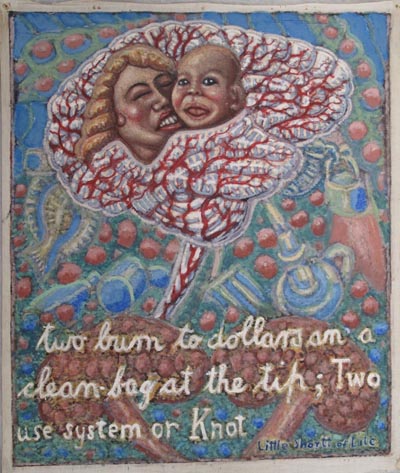 two burn to dollars an a
clean-bag at the tip; Two
use system or Knot
Little Shorts of Life